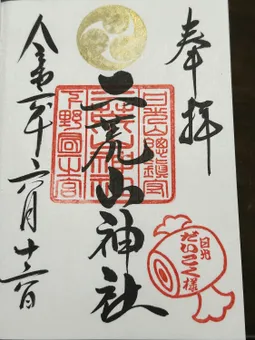 奉拝
日光山總鎮守
二荒山神社
下野國一之宮
令和 年六月十 日
日光
だいこく様